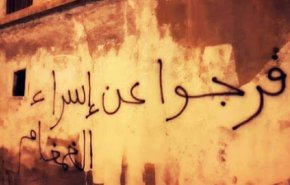 فرجوا عن إسراء
الغمغام